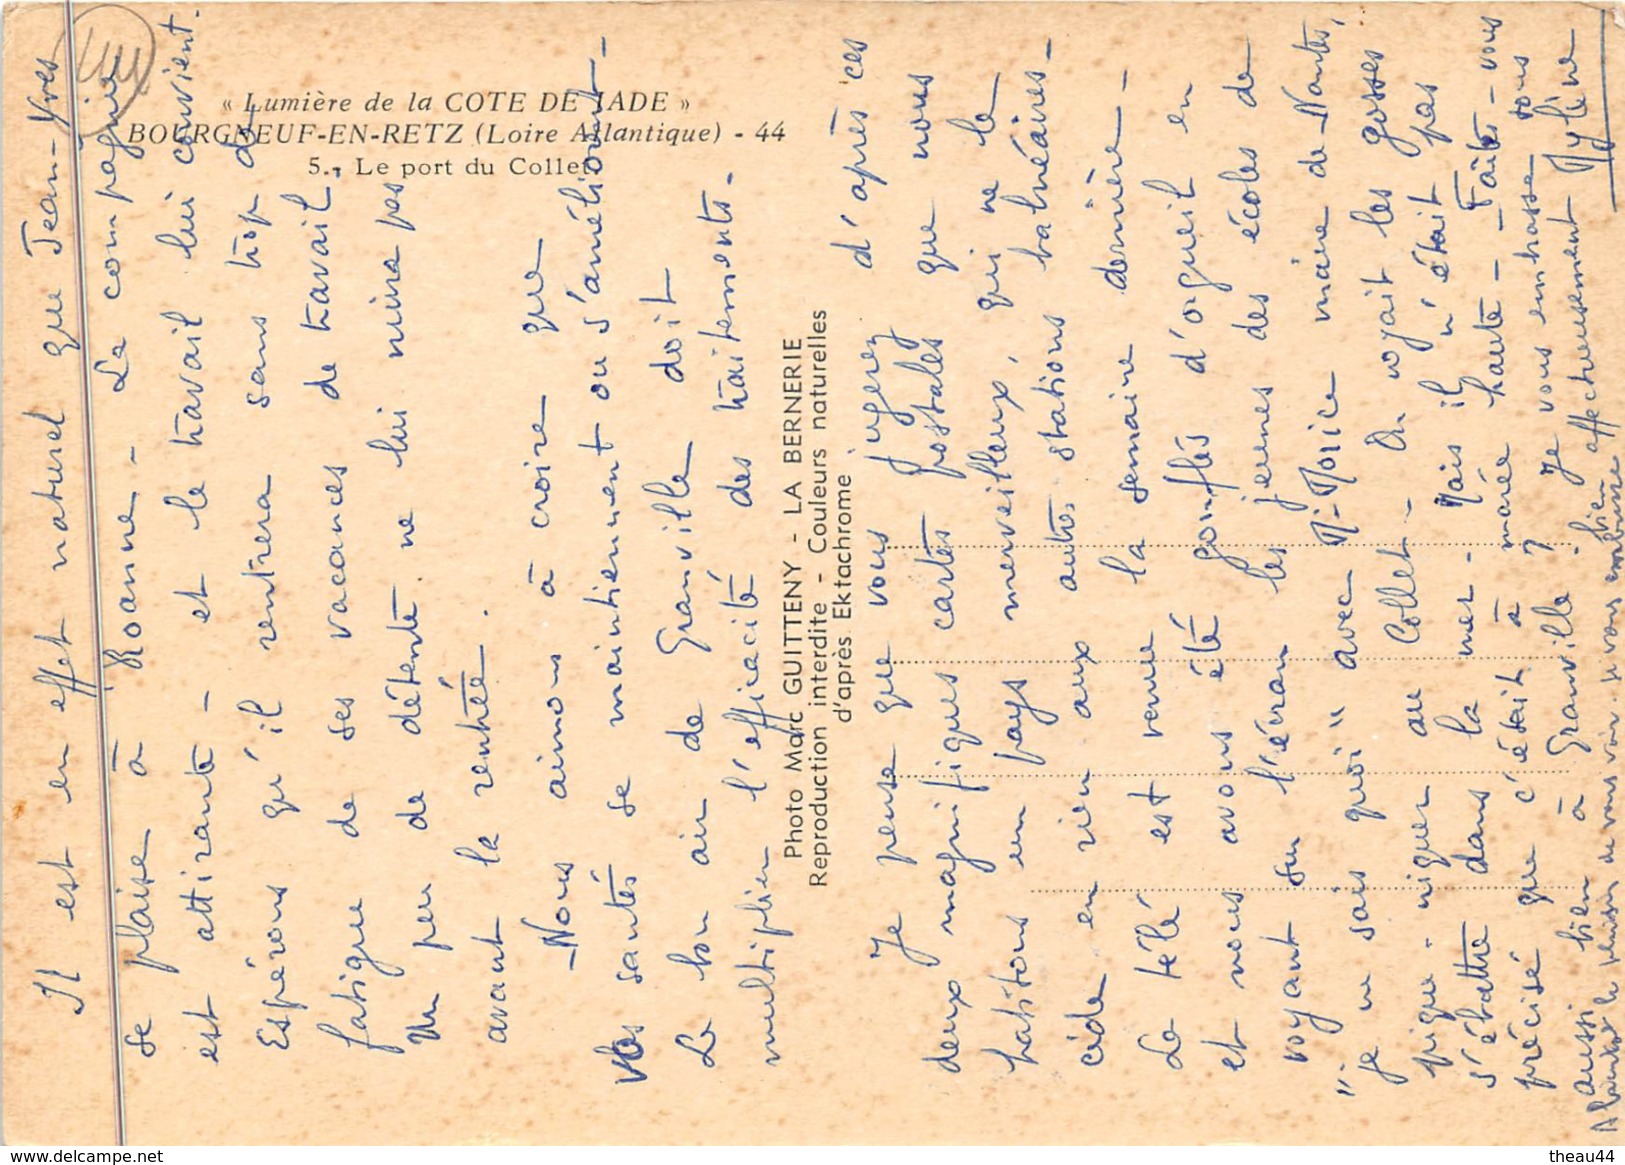 « Lumière de la COTE DE JADE »
BOURGNEUF-EN-RETZ (Loire Atlantique) - 44
5. - Le port du Collet
Il est en effet naturel que Jean-Yves
se plaise à Roanne - La compagnie
est attirante - et le travail lui convient.
Espérons qu'il rentrera sans trop de
fatigue de ses vacances de travail.
Un peu de détente ne lui nuira pas
avant la rentrée.
- Nous aimons à croire que
Vos santés se maintiennent ou s'améliorent -
Le bon air de Granville doit
multiplier l'efficacité des traitements.
Photo Marc GUITTENY - LA BERNERIE
Reproduction interdite - Couleurs naturelles
d'après Ektachrome
Je pense que vous jugerez d'après ces
deux magnifiques cartes postales que nous
habitons un pays merveilleux, qui ne le
cède en rien aux autres stations balnéaires -
La télé est venue la semaine dernière -
et nous avons été gonflés d'orgueil en
voyant sur l'écran les jeunes des écoles de
"je ne sais quoi" avec Mr Morice maire de Nantes,
pique-niquer au Collet - On voyait les gosses
s'ébattre dans la mer - Mais il n'était pas
précisé que c'était à marée haute - Faites-vous
aussi bien à Granville ? Je vous embrasse tous
bien affectueusement Mylène
A bientôt le plaisir de vous voir. Je vous embrasse
www.delcampe.net
theau44